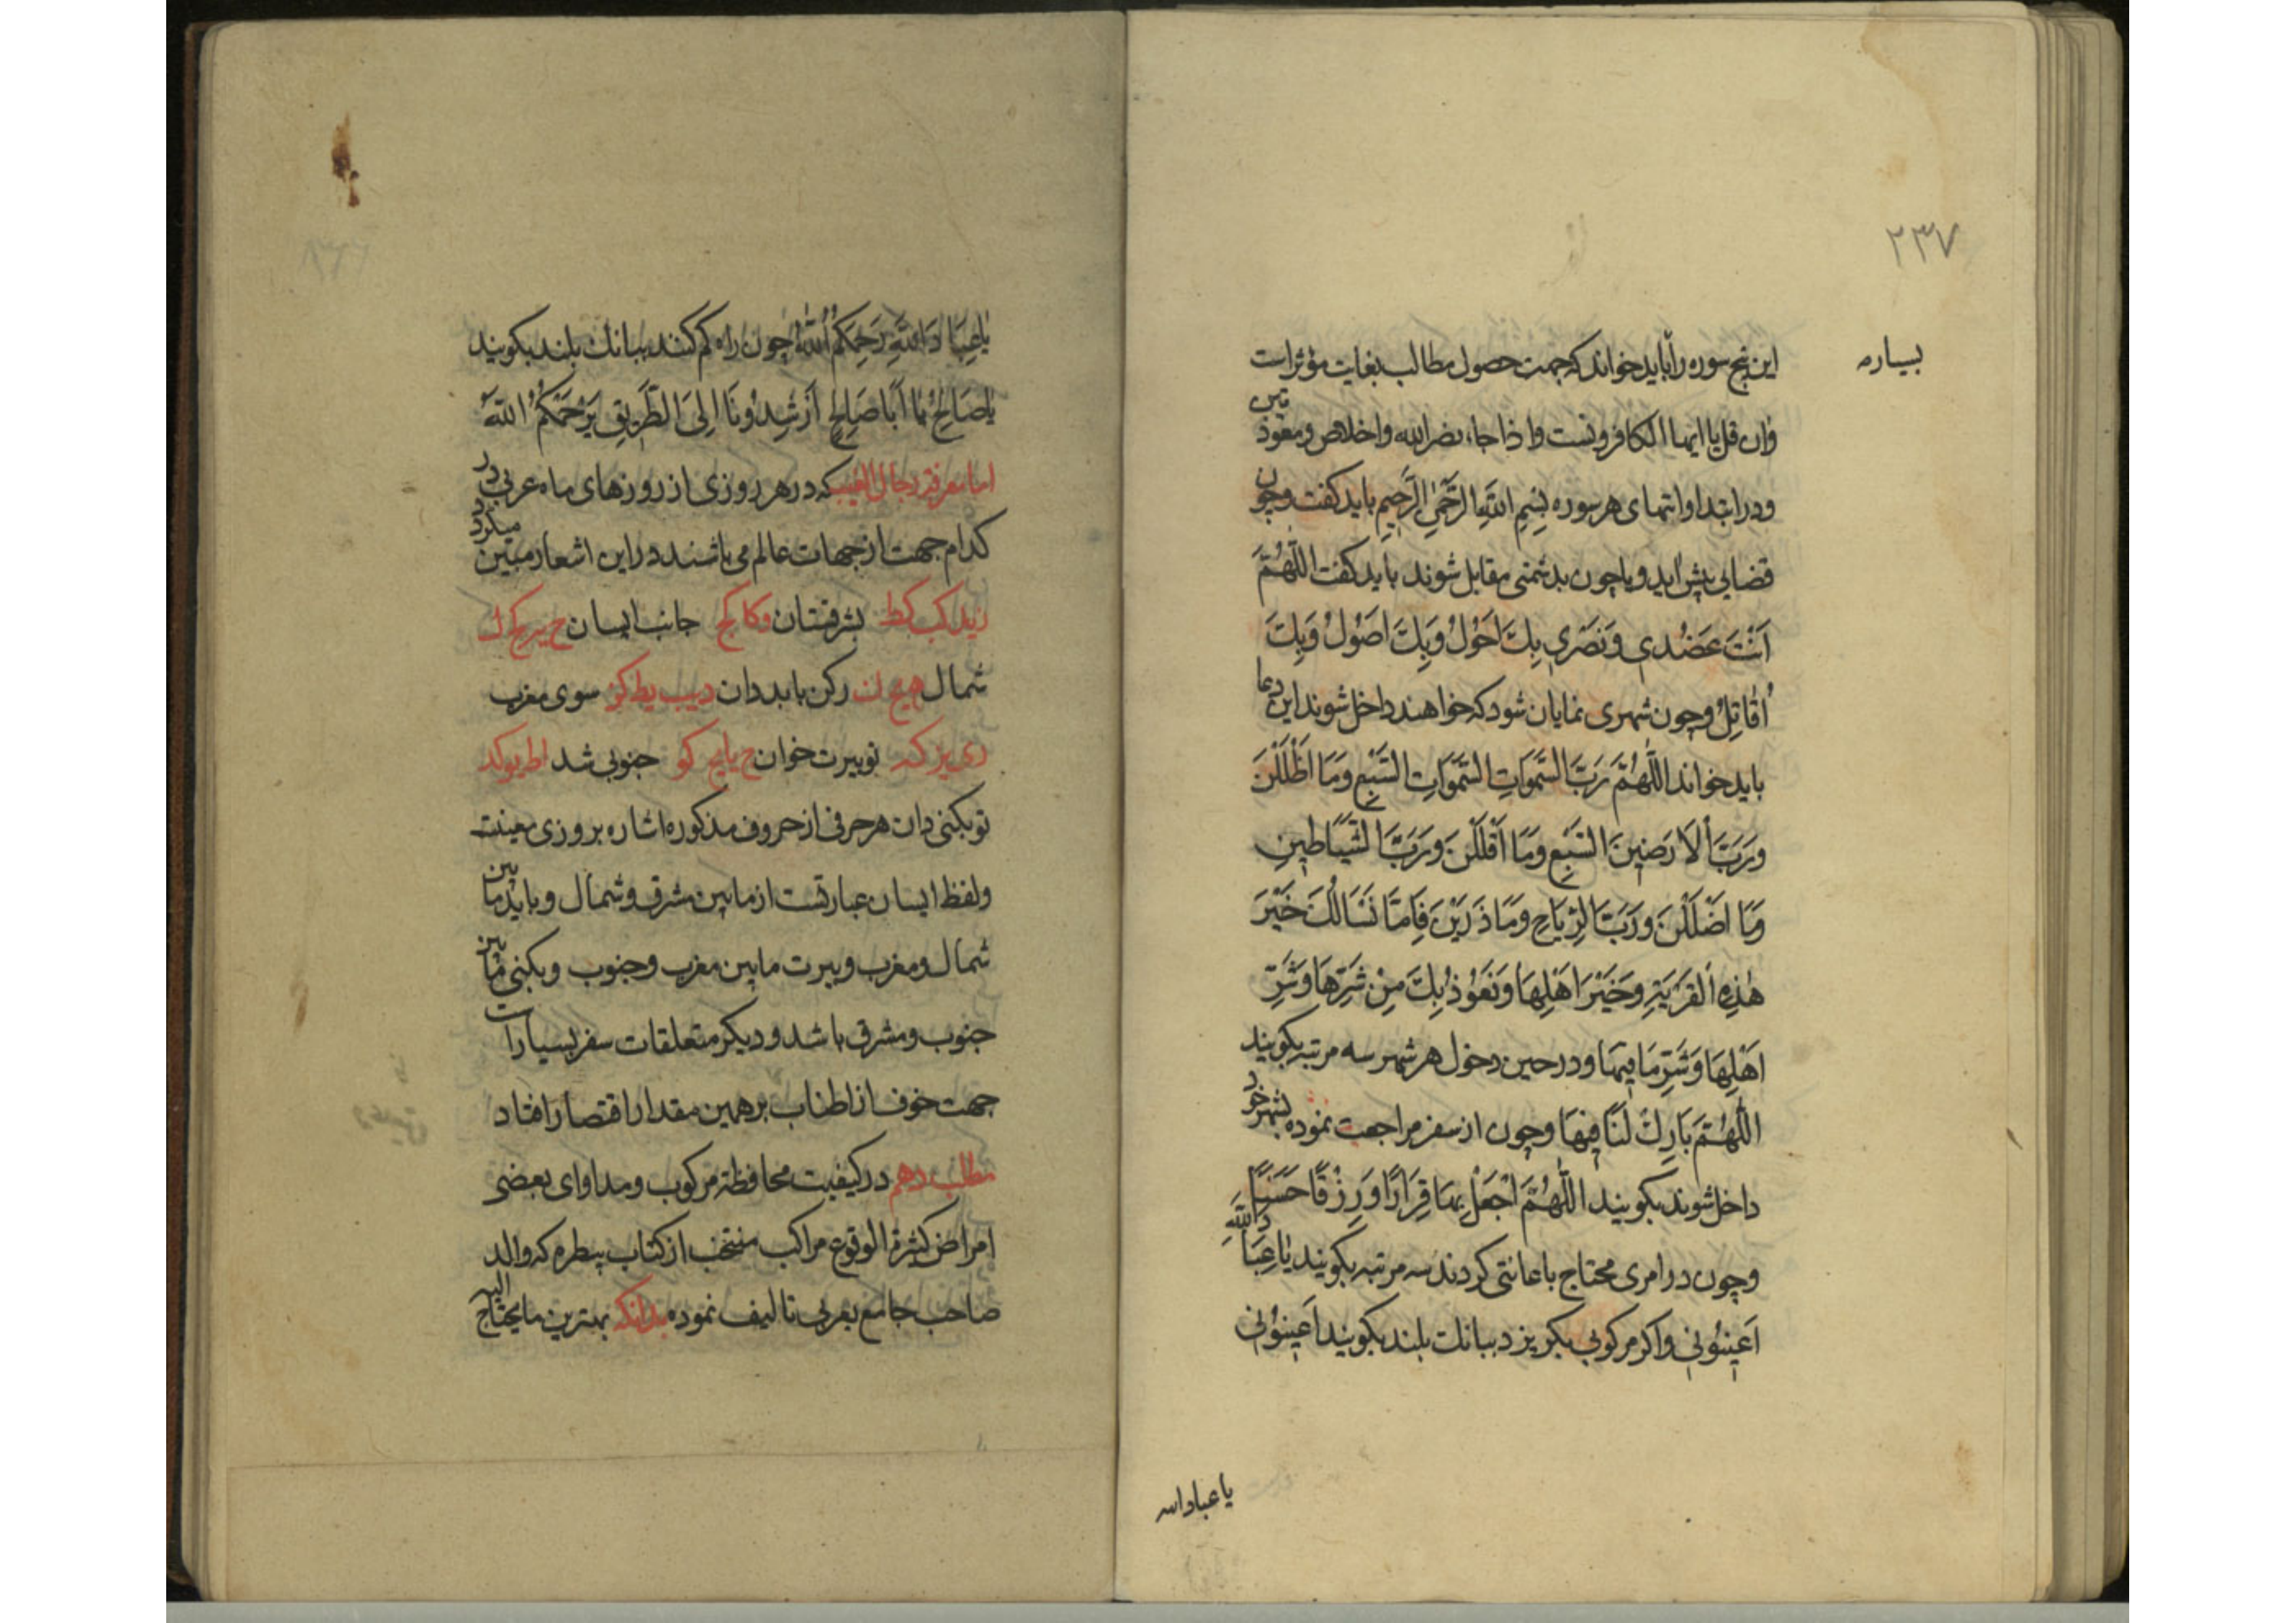 ٢٣٧
بسیاره
این پنج سوره را باید خواند که جهت حصول مطالب بغایت مؤثر است
وان قل یا ایها الکافرونست و اذا جاء نصر الله و اخلاص و معوذتین
و در ابتدا و انتهای هر سوره بِسْمِ اللهِ الرَّحْمٰنِ الرَّحِیمِ باید کفت و چون
قضایی پیش اید و یا چون بدشمنی مقابل شوند باید کفت اللّٰهُمَّ
اَنْتَ عَضُدی وَنَصْرِی بِكَ اَحُولُ وَبِكَ اَصُولُ وَبِكَ
اُقَاتِلُ و چون شهری نمایان شود که خواهند داخل شوند این دعا
باید خواند اللّٰهُمَّ رَبَّ السَّمٰوَاتِ السَّمَوَاتِ السَّبْعِ وَمَا اَظْلَلْنَ
وَرَبَّ الْاَرَضِینَ السَّبْعِ وَمَا اَقْلَلْنَ وَرَبَّ الشَّیَاطِینِ
وَمَا اَضْلَلْنَ وَرَبَّ الرِّیَاحِ وَمَا ذَرَیْنَ فَاِمَّا نَسْاَلُكَ خَیْرَ
هٰذِهِ الْقَرْیَةِ وَخَیْرَ اَهْلِهَا وَنَعُوْذُ بِكَ مِنْ شَرِّهَا وَشَرِّ
اَهْلِهَا وَشَرِّ مَا فِیهَا و در حین دخول هر شهر سه مرتبه بکویند
اللّٰهُمَّ بَارِكْ لَنَا فِیهَا و چون از سفر مراجعت نموده بشهر خود
داخل شوند بکویند اللّٰهُمَّ اجْعَلْ بِهَا قِرَارًا وَرِزْقًا حَسَنًا
و چون در امری محتاج باعانتی کردند سه مرتبه بکویند یَا عِبَادَ اللهِ
اَعِینُوْنِی و اکر مرکوبی بکریزد ببانك بلند بکویند اَعِینُوْنِی
یا عباد الله
یَا عِبَادَ اللهِ رَحِمَكُمُ اللهُ چون راه کم کنند ببانك بلند بکویند
یَا صَالِحُ یَا اَبَا صَالِحٍ اَرْشِدُوْنَا اِلَی الطَّرِیقِ یَرْحَمْكُمُ اللهُ
اما معرفة رجال الغیب که در هر روزی از روزهای ماه عربی در
کدام جهت از جهات عالم می باشند در این اشعار مبین میکردد
زید کب کط بشرقستان وکا کج جانب ایسان
شمال رکن باید دان دیب یط کز سوی مغرب
ری یز که تو بیرت خوان ح یا یج کو جنوبی شد اط یو کد
تو بکنی دان هر حرفی از حروف مذکوره اشاره بروزی معینت
ولفظ ایسان عبارتست از مابین مشرق و شمال و باید مابین
شمال و مغرب و بیرت مابین مغرب و جنوب و بکنی مابین
جنوب و مشرق باشد و دیکر متعلقات سفر بسیار است
جهت خوف از اطناب بر همین مقدار اقتصار افتاد
مطلب دهم در کیفیت محافظة مرکوب و مداوای بعضی
امراض کثیرة الوقوع مراکب منتخب از کتاب بیطره که والد
صاحب جامع بعربی تالیف نموده بدانکه بهترین مایحتاج الیه